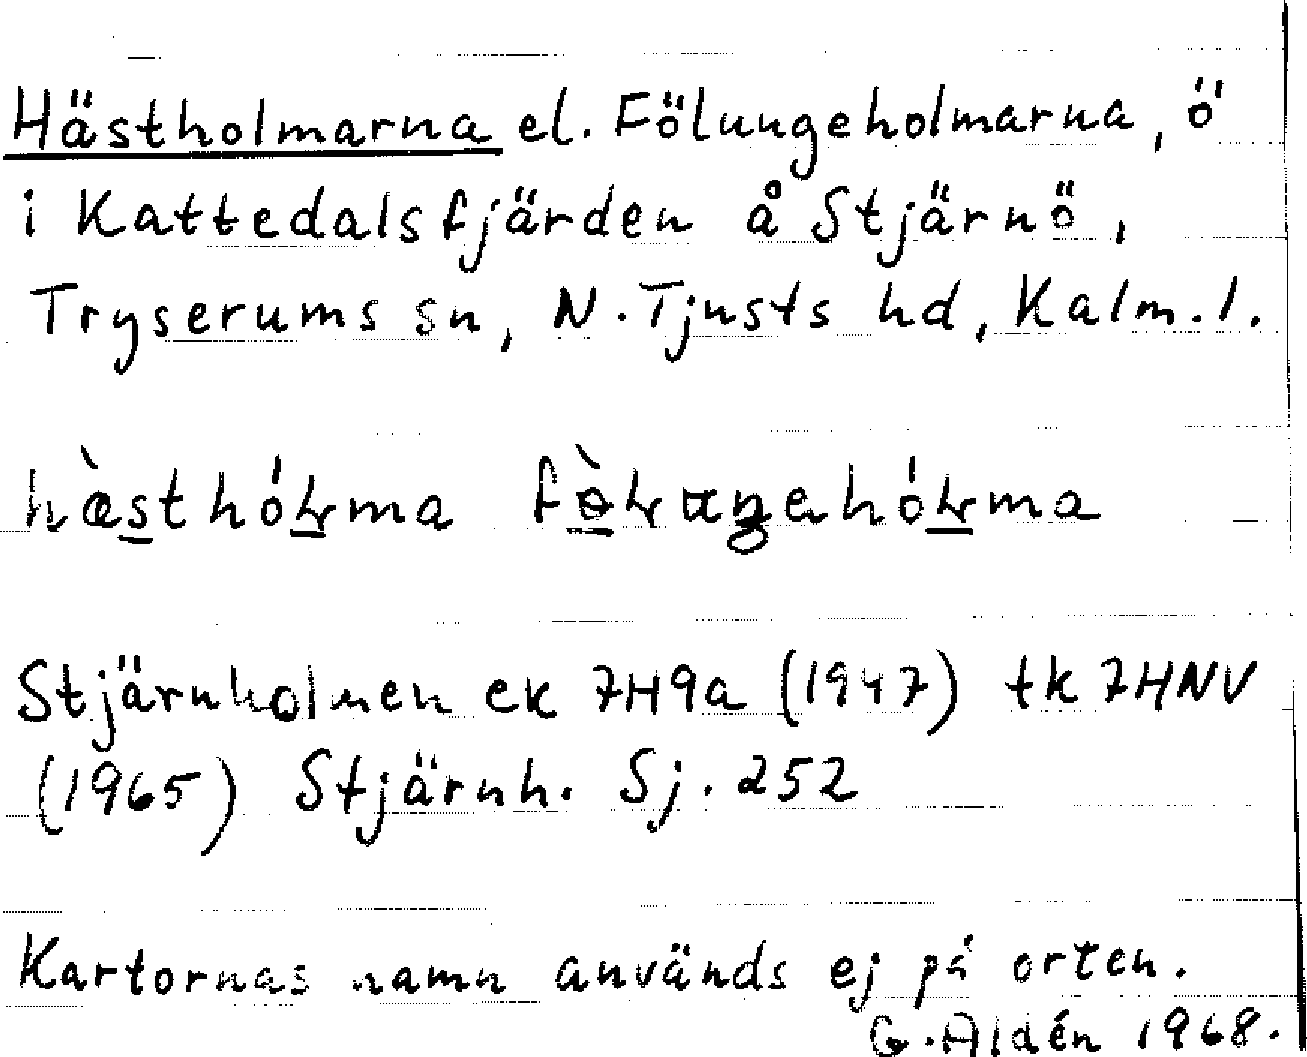 Hästholmarna el. Fölungeholmarna, ö
i Kattedalsfjärden å Stjärnö,
Tryserums sn, N. Tjusts hd, Kalm. l.
Stjärnholmen ek 7H9a (1947) tk 7HNV
(1965) Stjärnh. Sj. 252
Kartornas namn används ej på orten.
G. Aldén 1968.